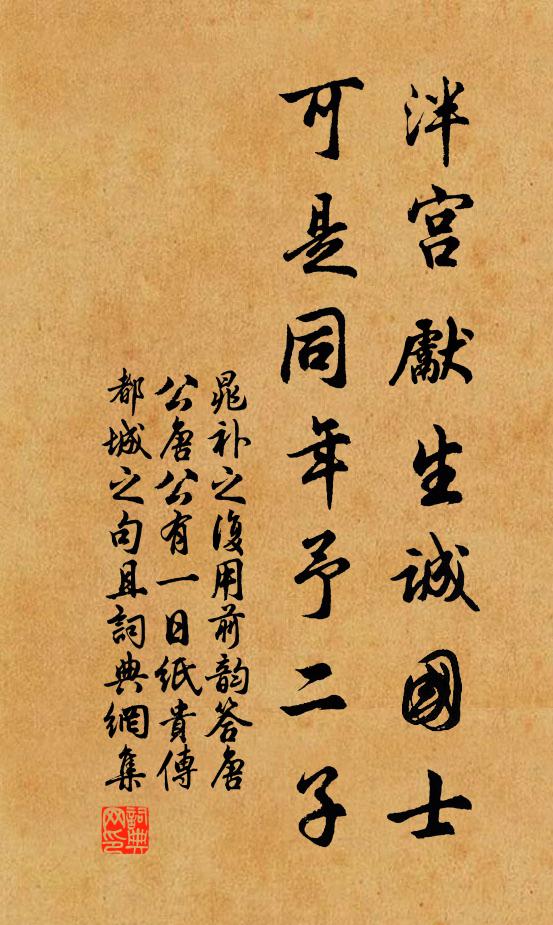 泮宮獻生誠國士
可是同年予二子
晁补之復用前韵答唐
公唐公有一日紙貴傳
都城之句且詞典網集
詞典
网印